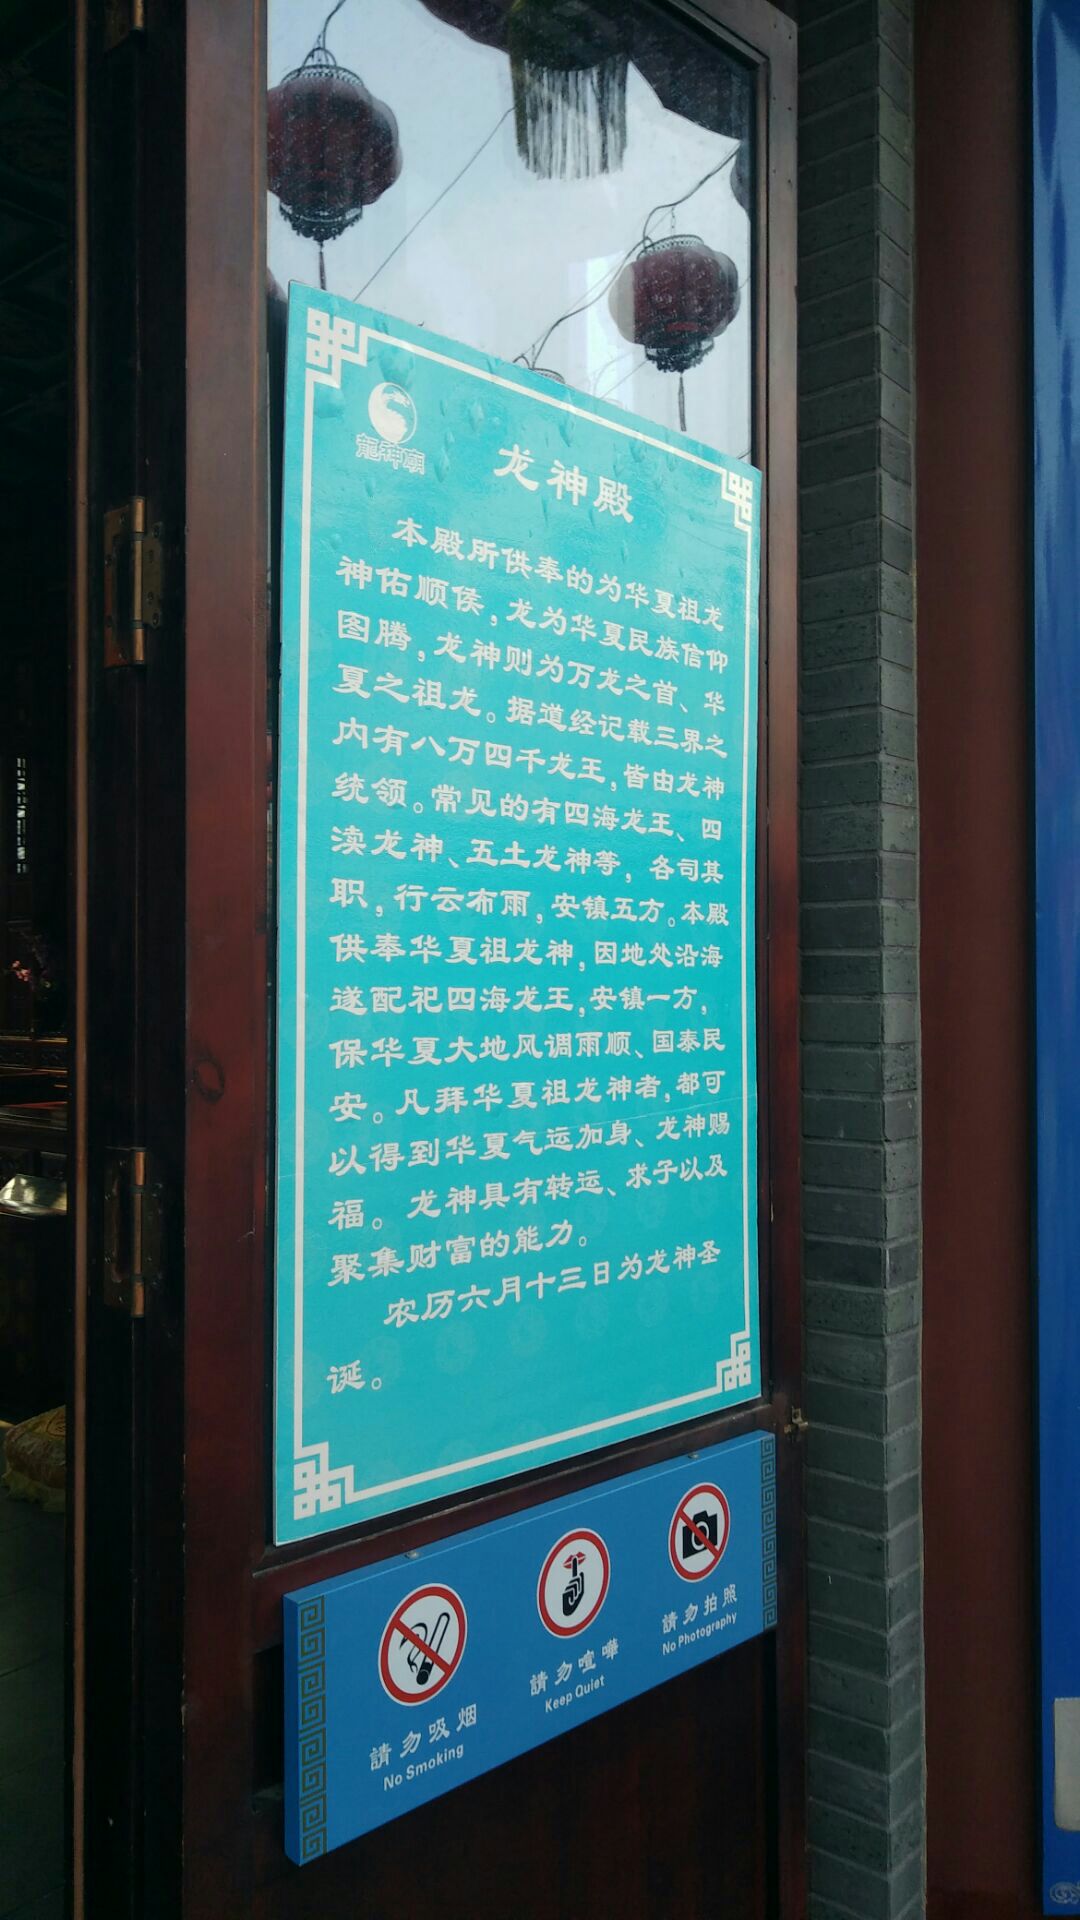 龍神廟
龙神殿
本殿所供奉的为华夏祖龙
神佑顺侯，龙为华夏民族信仰
图腾，龙神则为万龙之首、华
夏之祖龙。据道经记载三界之
内有八万四千龙王，皆由龙神
统领。常见的有四海龙王、四
渎龙神、五土龙神等，各司其
职，行云布雨，安镇五方。本殿
供奉华夏祖龙神，因地处沿海
遂配祀四海龙王，安镇一方，
保华夏大地风调雨顺、国泰民
安。凡拜华夏祖龙神者，都可
以得到华夏气运加身、龙神赐
福。龙神具有转运、求子以及
聚集财富的能力。
农历六月十三日为龙神圣
诞。
請勿吸烟
No Smoking
請勿喧嘩
Keep Quiet
請勿拍照
No Photography